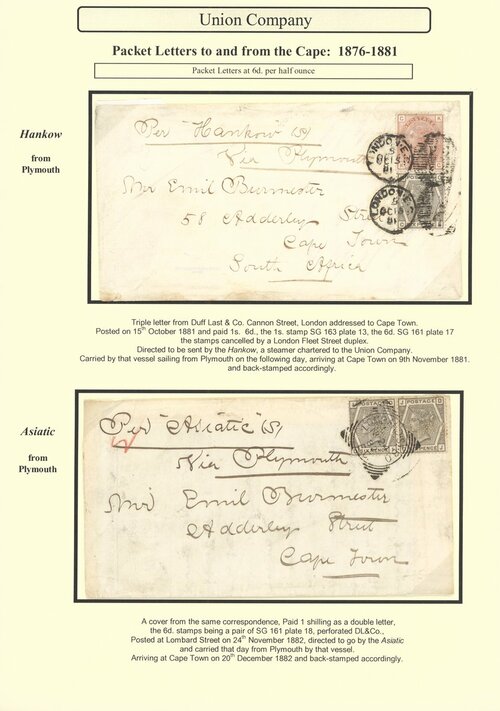 Union Company
Packet Letters to and from the Cape: 1876-1881
Packet Letters at 6d. per half ounce
Hankow
from
Plymouth
Per "Hankow" (S)
Via Plymouth
Mr Emil Burmester
58 Adderley Street
Cape Town
South Africa
LONDON E.C.
OC 15
81
LONDON E.C.
OC 15
81
Triple letter from Duff Last & Co. Cannon Street, London addressed to Cape Town.
Posted on 15th October 1881 and paid 1s. 6d., the 1s. stamp SG 163 plate 13, the 6d. SG 161 plate 17
the stamps cancelled by a London Fleet Street duplex.
Directed to be sent by the Hankow, a steamer chartered to the Union Company.
Carried by that vessel sailing from Plymouth on the following day, arriving at Cape Town on 9th November 1881.
and back-stamped accordingly.
Asiatic
from
Plymouth
Per "Asiatic" (S)
Via Plymouth
Mr Emil Burmester
Adderley Street
Cape Town
POSTAGE
A cover from the same correspondence, Paid 1 shilling as a double letter,
the 6d. stamps being a pair of SG 161 plate 18, perforated DL&Co.,
Posted at Lombard Street on 24th November 1882, directed to go by the Asiatic
and carried that day from Plymouth by that vessel.
Arriving at Cape Town on 20th December 1882 and back-stamped accordingly.